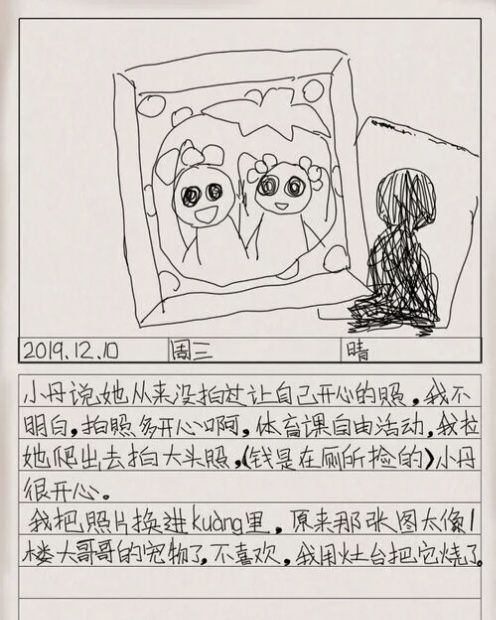 2019.12.10 周三 晴
小丹说她从来没拍过让自己开心的照，我不
明白，拍照多开心啊，体育课自由活动，我拉
她爬出去拍大头照，(钱是在厕所捡的)小丹
很开心。
我把照片换进kuàng里，原来那张图太像1
楼大哥哥的宠物了，不喜欢，我用灶台把它烧了。